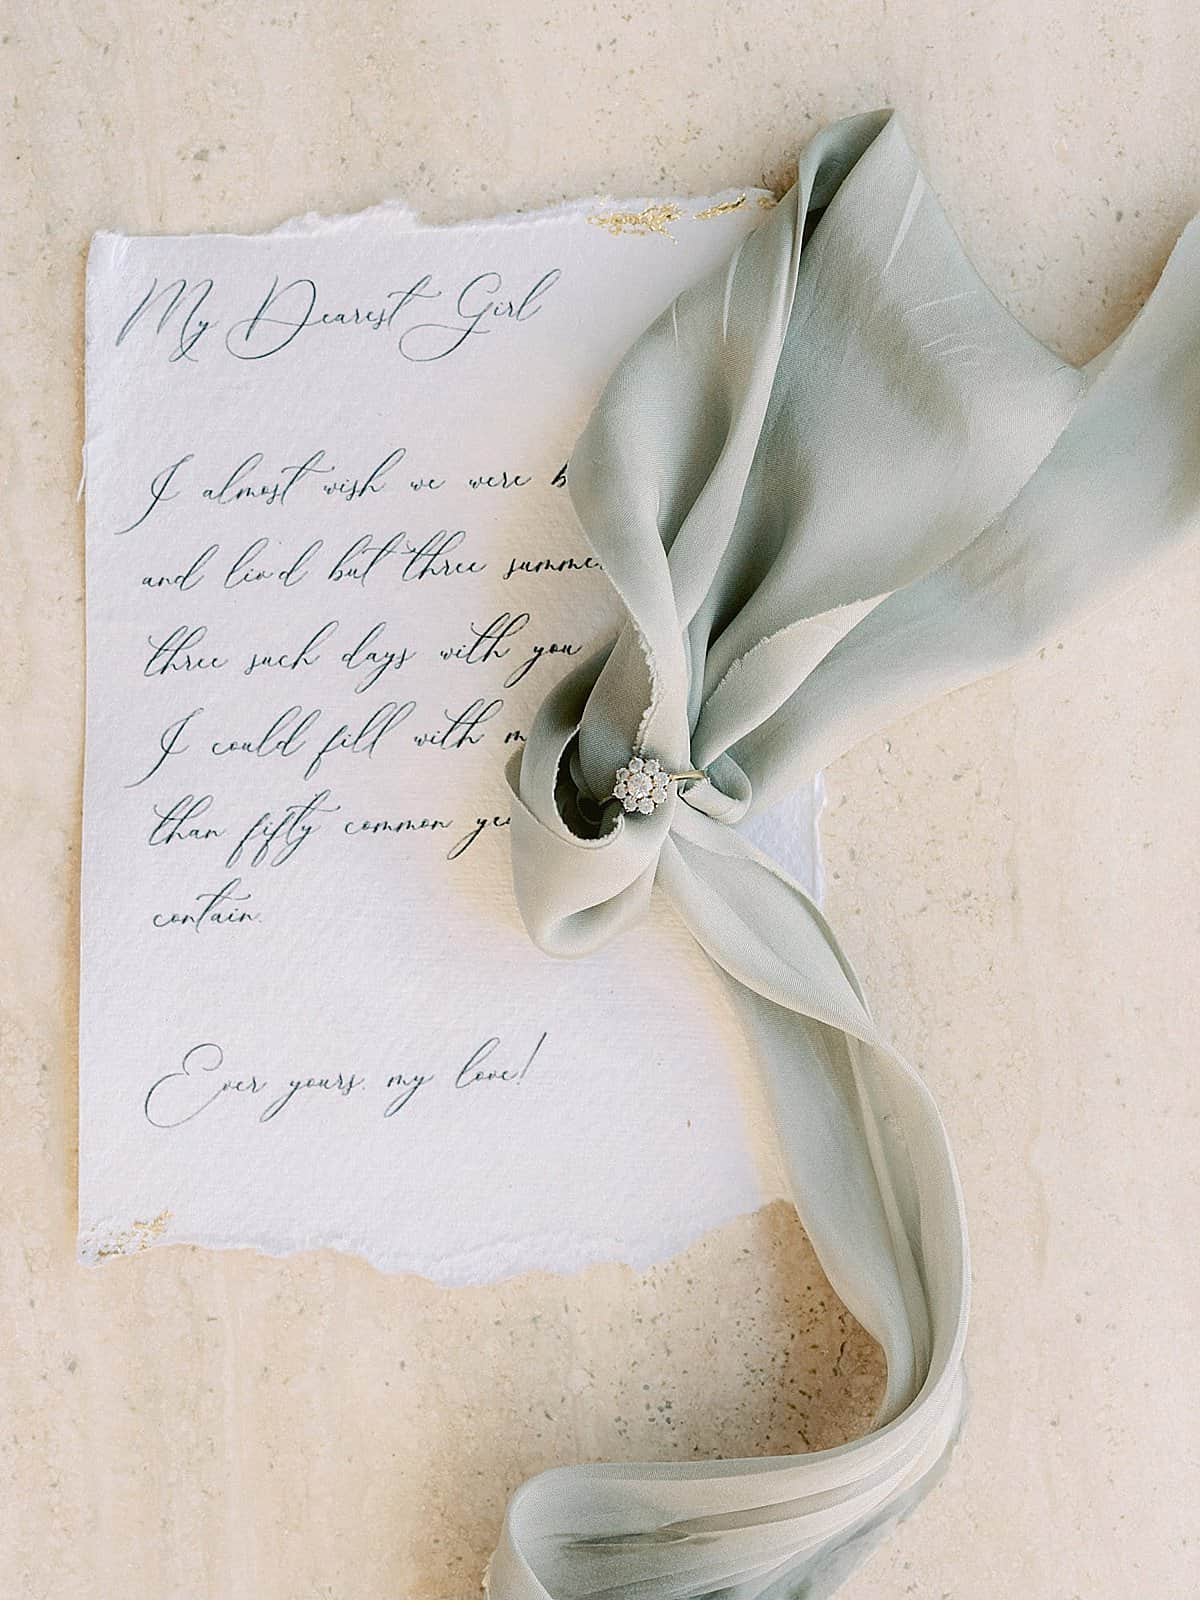 My Dearest Girl
I almost wish we were b
and liv'd but three summe
three such days with you
I could fill with m
than fifty common yea
contain.
Ever yours, my love!